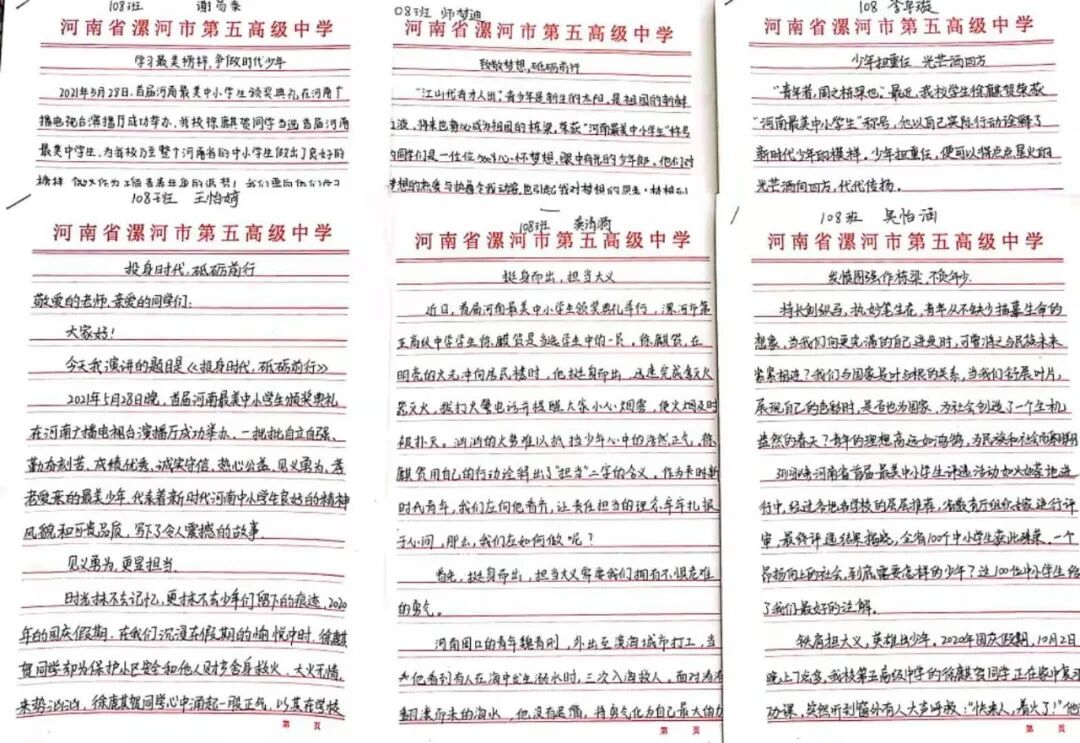 108班
河南省漯河市第五高级中学
学习最美榜样,争做时代少年
2021年5月28日,首届河南最美中小学生颁奖典礼在河南广
播电视台演播厅成功举办。我校徐麒贺同学当选首届河南
最美中学生,为我校乃至整个河南省的中小学生做出了良好的
08班 师梦迪
河南省漯河市第五高级中学
致敬梦想,砥砺前行
"江山代有才人出",青少年是新生的太阳,是祖国的新鲜
血液,将来也势必成为祖国的栋梁,荣获"河南最美中小学生"称号
的同学们是一位位 心怀梦想、眼中有光的少年郎,他们对
108
河南省漯河市第五高级中学
少年担重任 光芒洒四方
"青年者,国之栋梁也。"最近,我校学生徐麒贺荣获
"河南最美中小学生"称号,他以自己实际行动诠解了
新时代少年的模样。少年担重任,便可以将点点星火的
光芒洒向四方,代代传扬。
108班 王怡婷
河南省漯河市第五高级中学
投身时代,砥砺前行
敬爱的老师、亲爱的同学们:
大家好!
今天我演讲的题目是《投身时代,砥砺前行》
2021年5月28日晚,首届河南最美中小学生颁奖典礼
在河南广播电视台演播厅成功举办。一批批自立自强、
勤奋刻苦、成绩优秀、诚实守信、热心公益、见义勇为、孝
老爱亲的最美少年,代表着新时代河南中小学生良好的精神
风貌和可贵品质,写下了令人震撼的故事。
见义勇为,更显担当。
时光抹不去记忆,更抹不去少年们留下的痕迹,2020
年的国庆假期,在我们沉浸在假期的愉悦中时,徐麒
贺同学却为保护小区安全和他人财产舍身救火、大火无情,
来势汹汹,徐麒贺同学心中涌起一股正气,以其在学校
第 页
108班
河南省漯河市第五高级中学
挺身而出,担当大义
近日,首届河南最美中小学生颁奖典礼举行,漯河市第
五高级中学学生徐麒贺是当选学生中的一员。徐麒贺,在
明亮的火光冲向居民楼时,他挺身而出,迅速完成查灭火
器灭火,拨打火警电话并提醒大家小心烟雾,使火烟及时
被扑灭。汹汹的火势难以抵挡少年心中的浩然正气,徐
麒贺用自己的行动诠解出了"担当"二字的含义。作为新时
新时代青年,我们应向他看齐,让责任担当的理念牢牢扎根
于心间,那么,我们应如何做呢?
首先,挺身而出,担当大义需要我们拥有不惧危难
的勇气。
河南周口的青年魏青刚,外出至滨海城市打工,当
他看到有人在海中发生溺水时,三次入海救人。面对滔滔
翻滚而来的海水,他没有畏惧,将勇气化为自己最大的力
第 页
108班 吴怡涵
河南省漯河市第五高级中学
发愤图强作栋梁,不负年少
持长剑纵马,执妙笔生花,青年从不缺少描摹生命的
想象。当我们向更完满的自己进发时,可曾将之与民族未来
紧紧相连?我们与国家是叶与根的关系,当我们舒展叶片,
展现自己的色彩时,是否也为国家,为社会创造了一个生机
盎然的春天?青年的理想高远如海鸥,为民族和社会
河南省首届最美中小学生评选活动如火如荼地进
行中,经过各地各学校的层层推荐,省教育厅组织专家进行评
审,最终评选结果揭晓,全省100个中小学生获此殊荣。一个
昂扬向上的社会,到底需要怎样的少年?这100位中小学生给
了我们最好的注解。
铁肩担大义,英雄出少年。2020年国庆假期,10月2日
晚上7点多,我校第五高级中学的徐麒贺同学正在家中复习
功课,突然听到窗外有人大声呼救:"快来人,着火了!"他
第 页